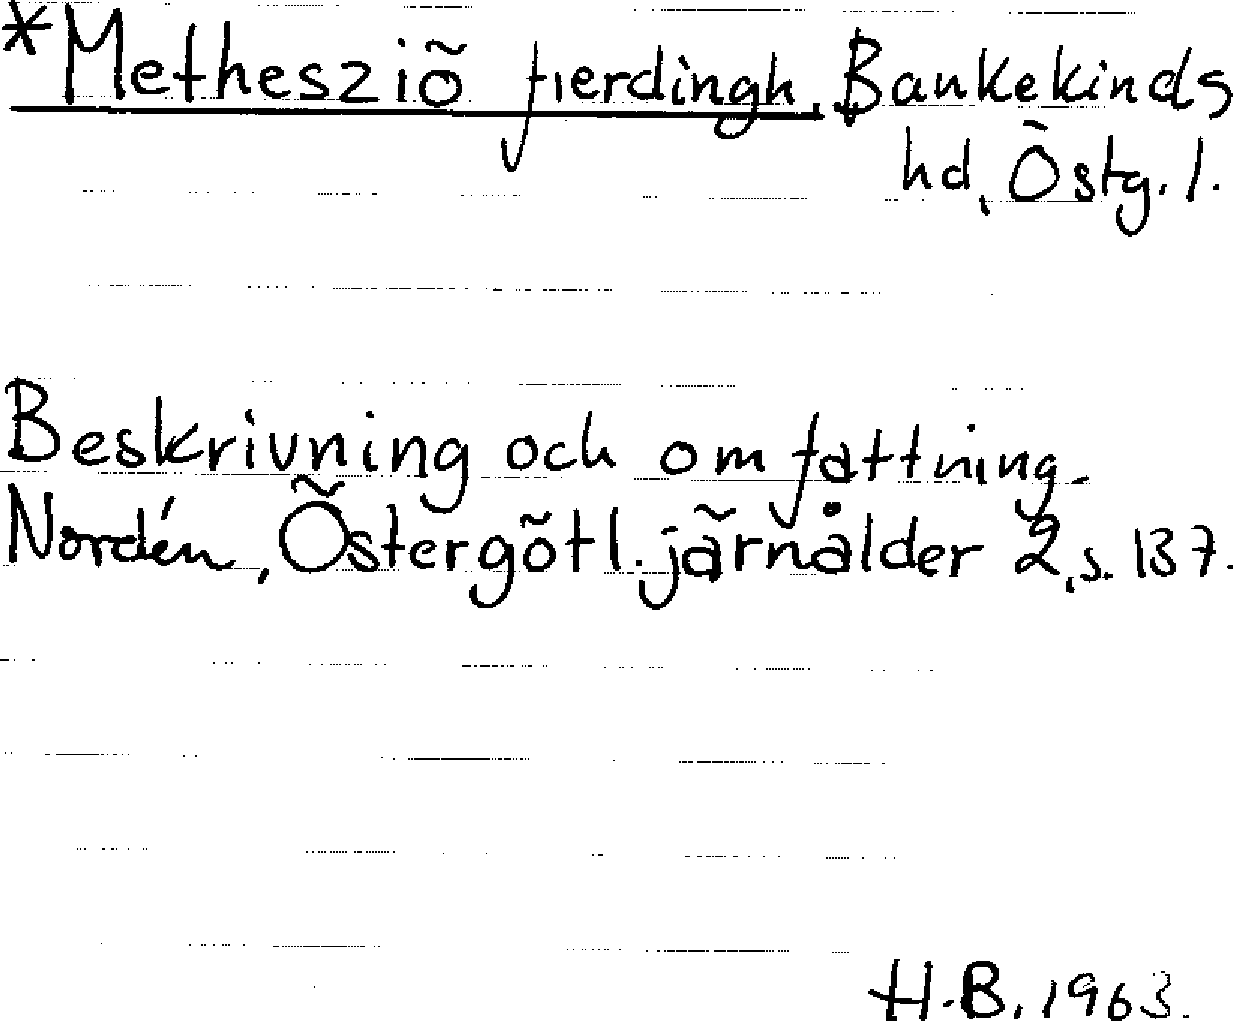 *Methesziö fierdingh, Bankekinds
hd, Östg. l.
Beskrivning och omfattning.
Nordén, Östergötl. järnålder 2, s. 137.
H.B. 1963.